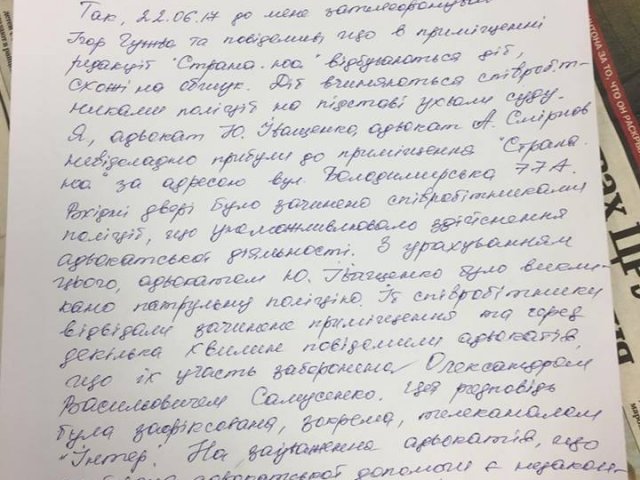 Так, 22.06.17 до мене зателефонував
Ігор Гужва та повідомив, що в приміщенні
редакції "Страна.юа" відбуваються дії,
схожі на обшук. Дії вчиняються співробіт-
никами поліції на підставі ухвали суду.
Я, адвокат Ю. Іващенко, адвокат А. Смірнов
невідкладно прибули до приміщення "Страна.
юа" за адресою вул. Володимирська 77А.
Вхідні двері було зачинено співробітниками
поліції, що унеможливлювало здійснення
адвокатської діяльності. З урахуванням
цього, адвокатом Ю. Іващенко було викли-
кано патрульну поліцію. Її співробітники
відвідали зачинене приміщення та через
декілька хвилин повідомили адвокатів,
що їх участь заборонена Олександром
Васильовичем Самусенко. Ця відповідь
була зафіксована, зокрема, телеканалом
"Інтер". На зауваження адвокатів, що
адвокатської допомоги є незакон-
ТОНА ЗА ТО, ЧТО ОН РАСКРЫ